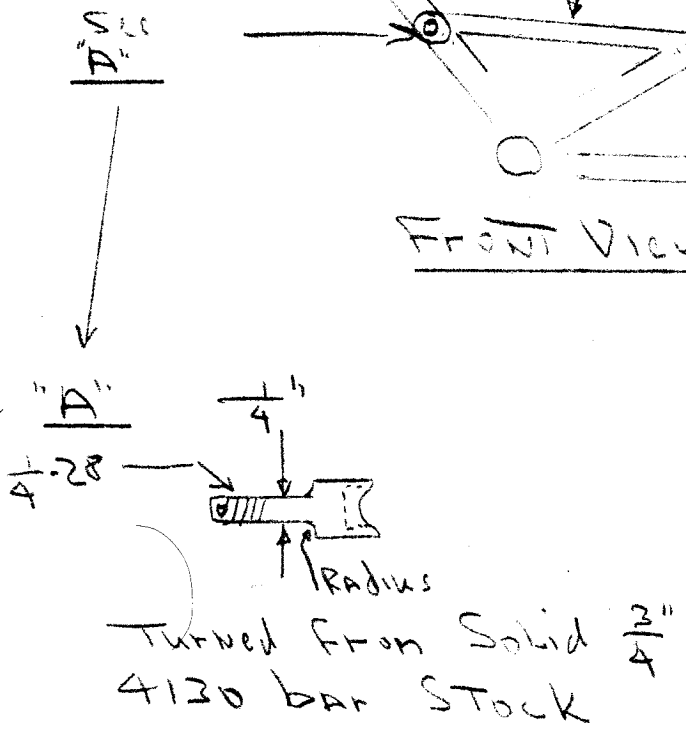 "A"
FRONT VIEW
"A"
1/4"
1/4-28
RADIUS
TURNED FROM SOLID 3/4"
4130 BAR STOCK